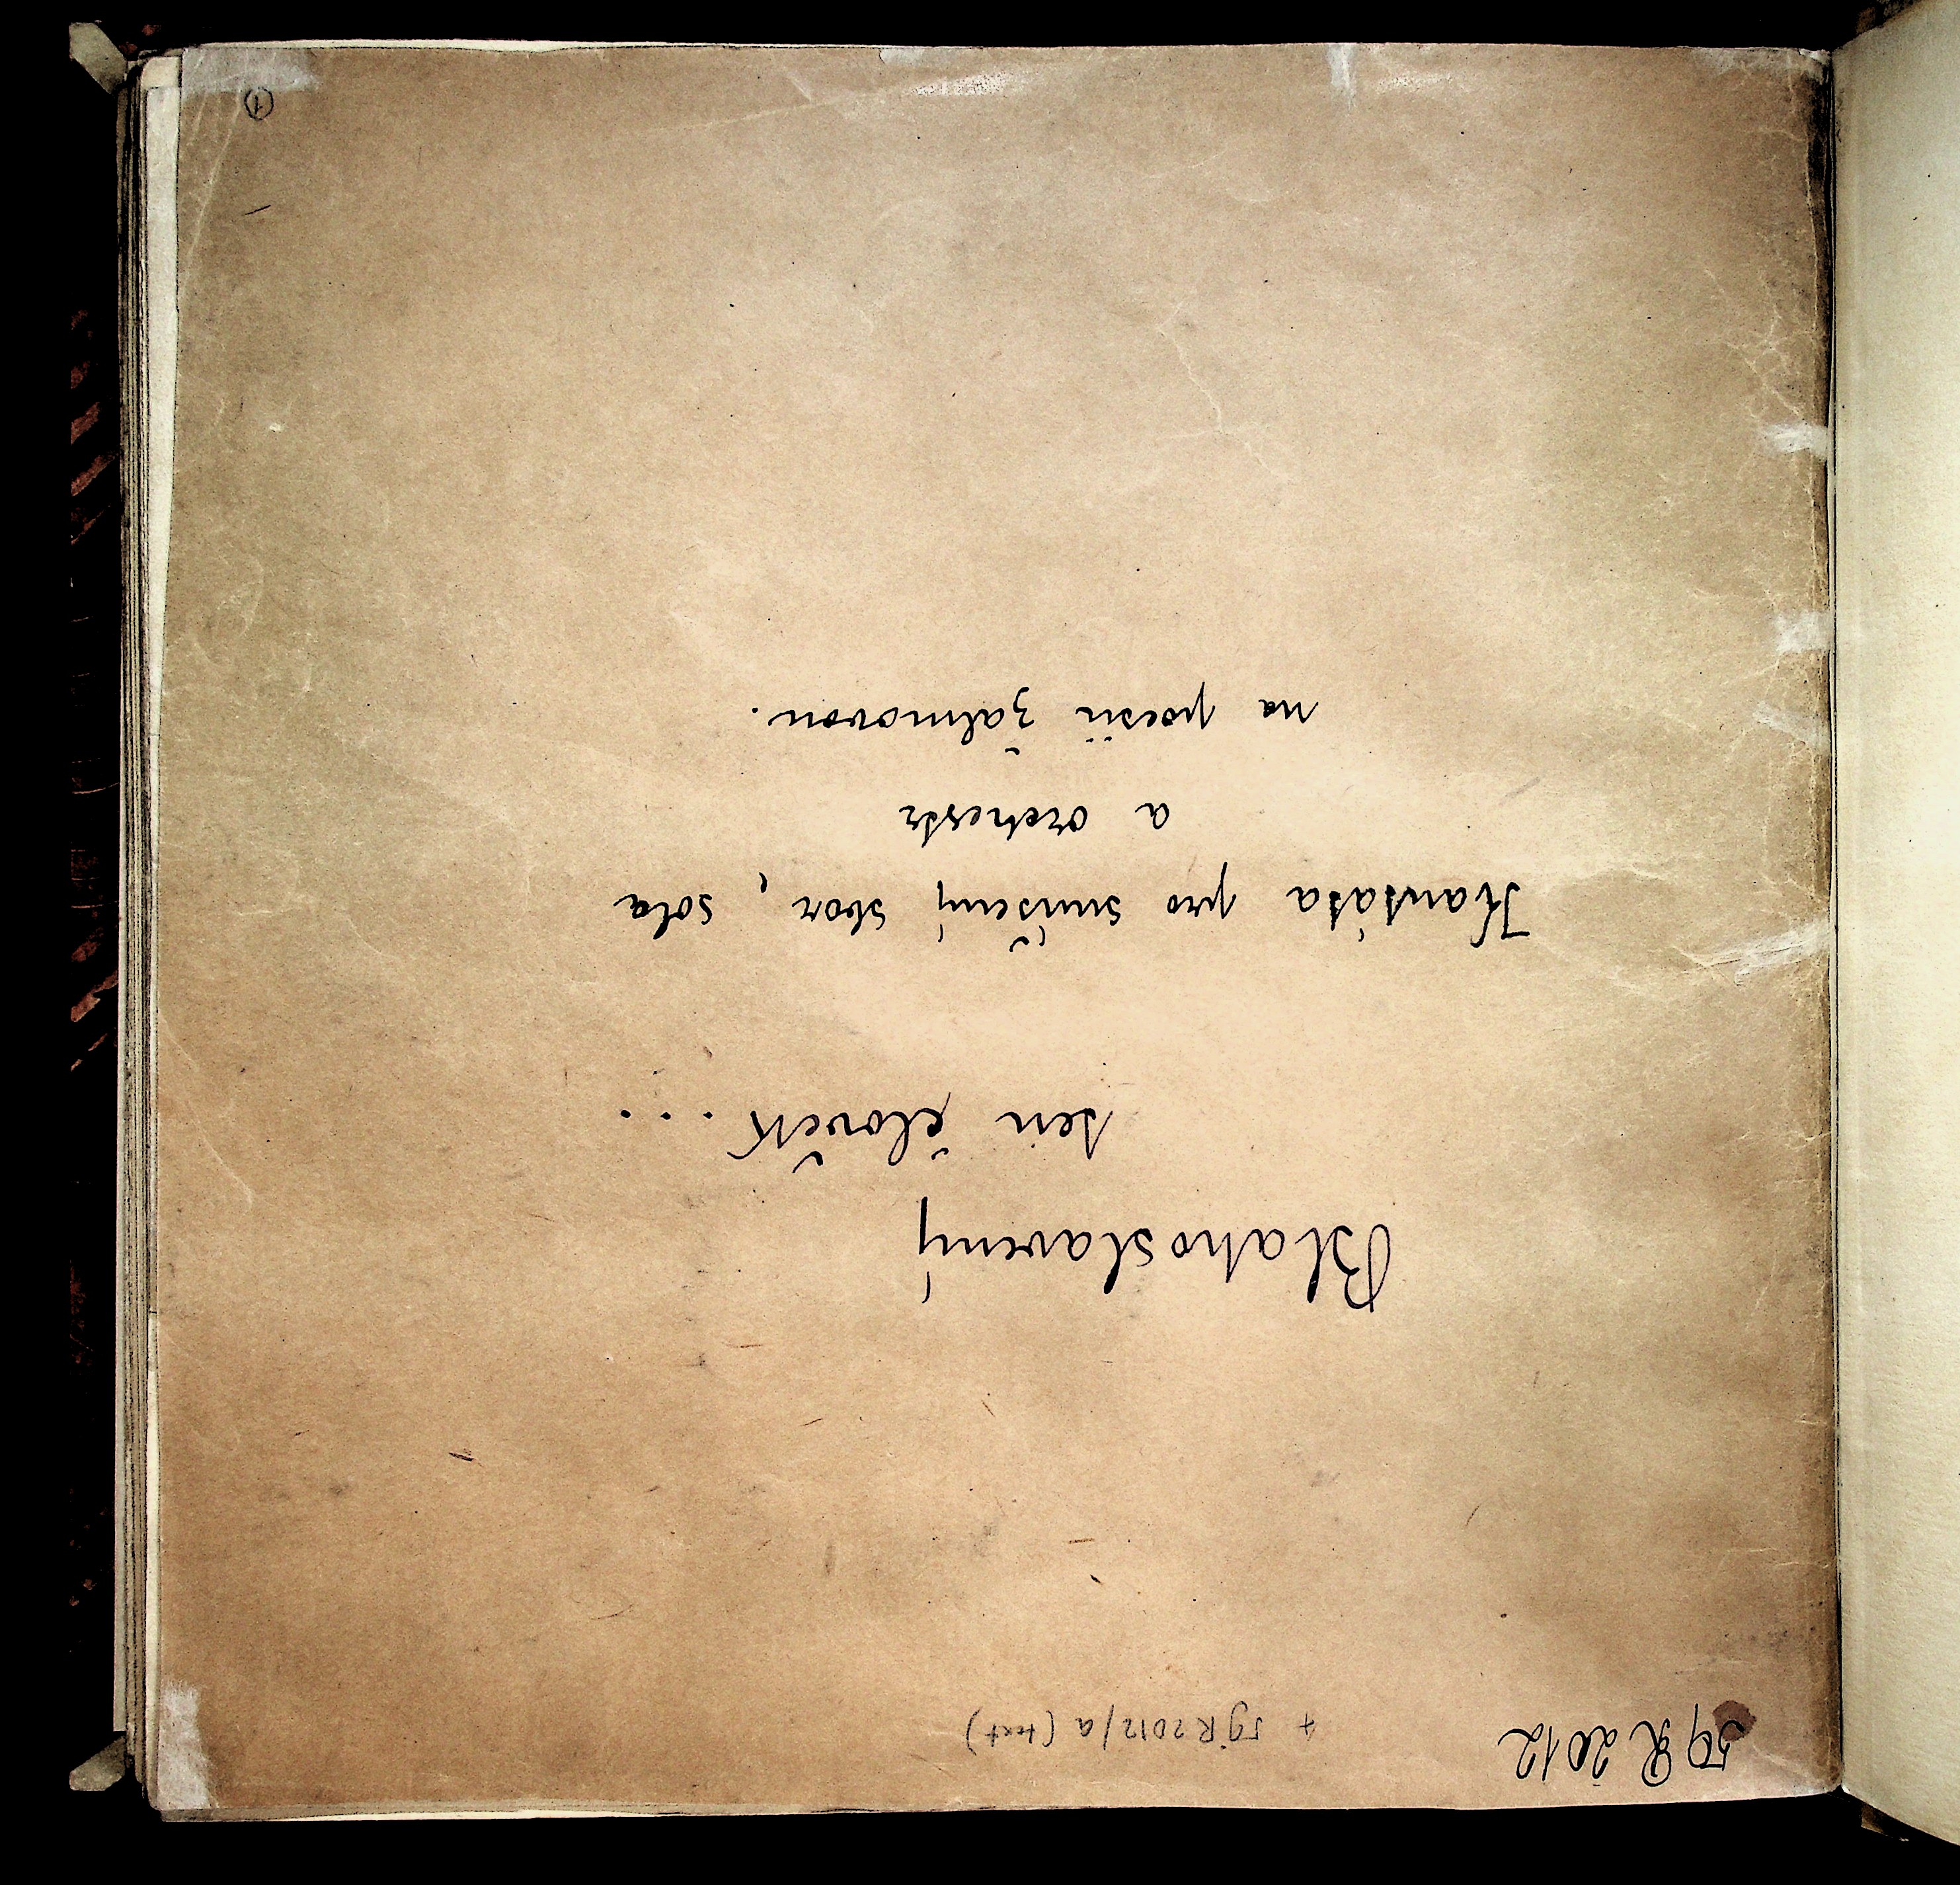 59 R 2012
+ 59 R 2012/a (text)
Blahoslavený
ten člověk...
Kantáta pro smíšený sbor, sola
a orchestr
na poesii žalmovou.
1